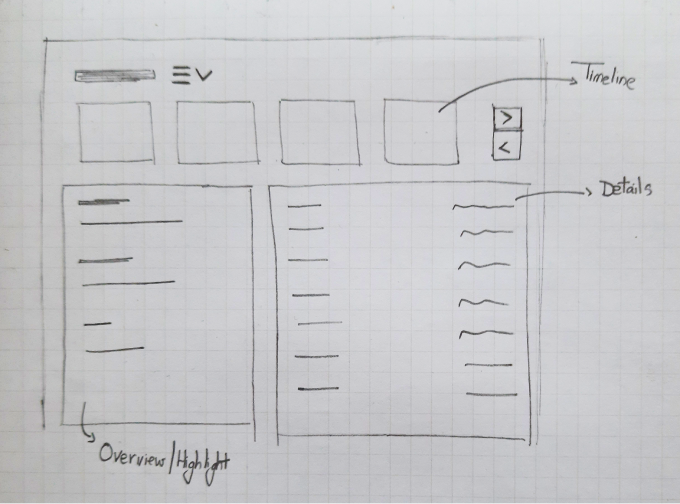 Timeline
>
<
Details
Overview/Highlight